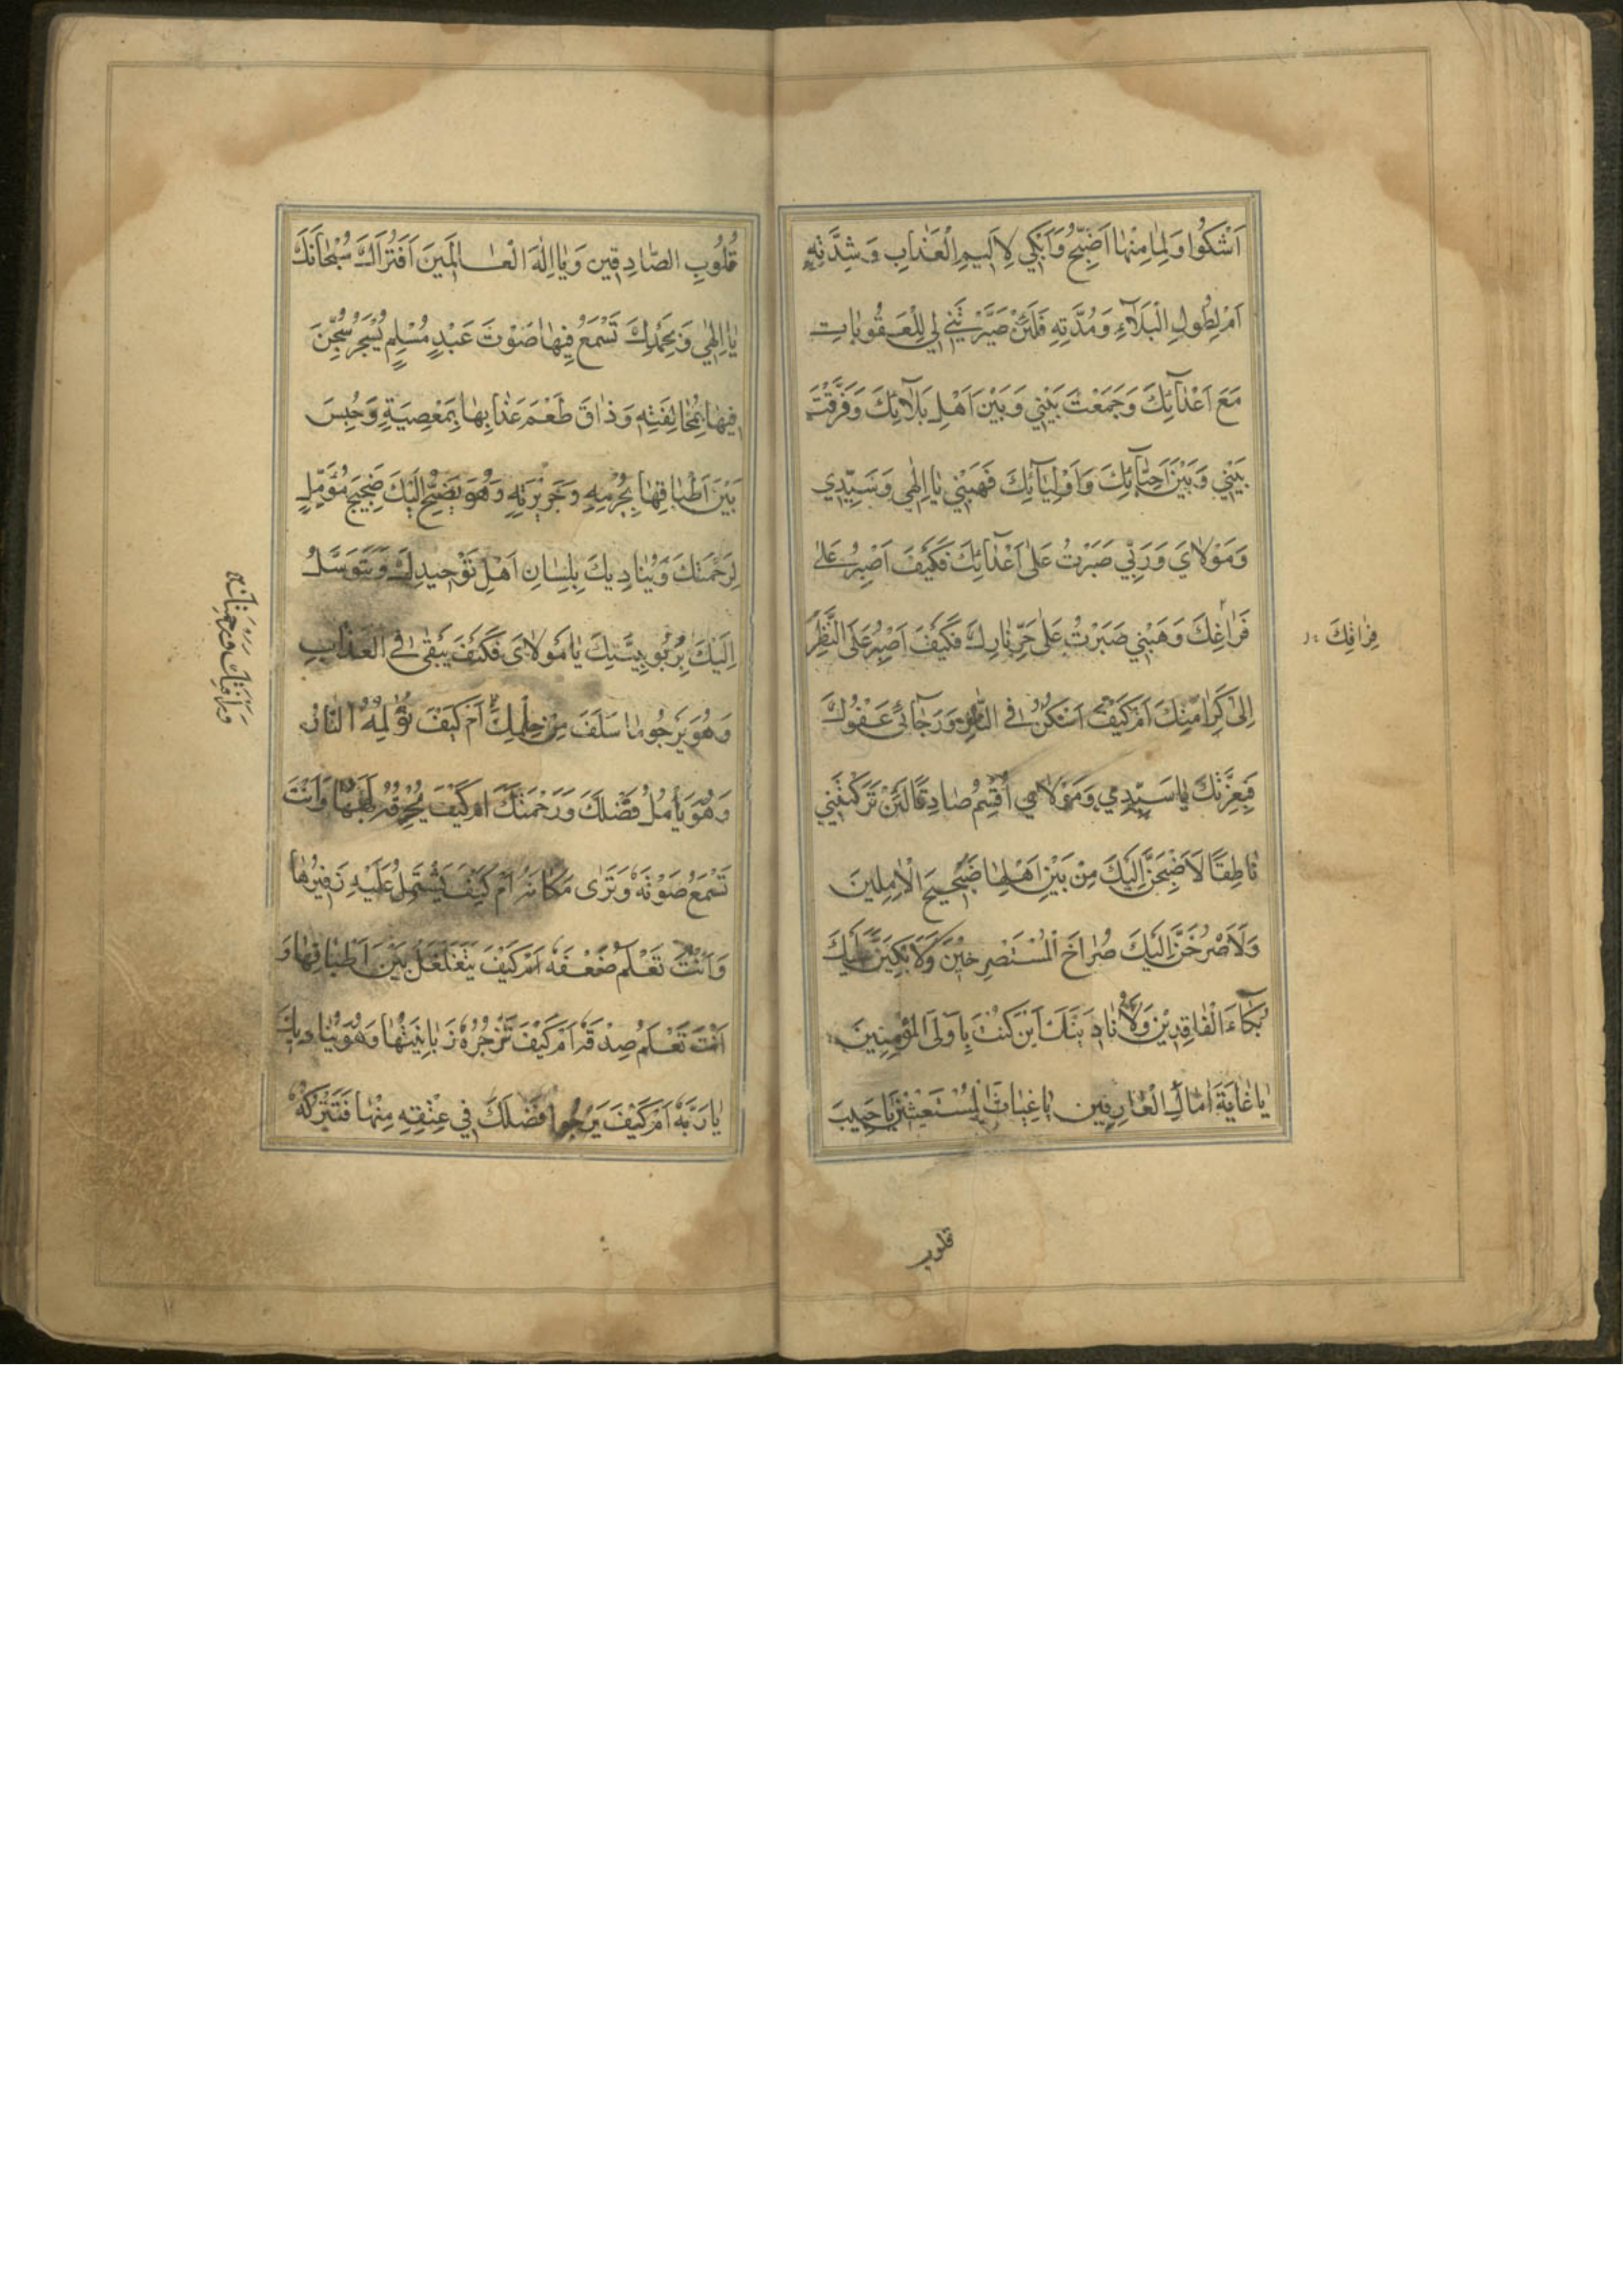 اَشْكُوا وَلِمَا مِنْهَا اَضِجُّ وَاَبْكي لِاَليمِ الْعَذَابِ وَشِدَّتِهِ
اَمْ لِطُولِ الْبَلَآءِ وَمُدَّتِهِ فَلَئِنْ صَيَّرْتَنِي لِي لِلْعُقُوبَاتِ
مَعَ اَعْدَآئِكَ وَجَمَعْتَ بَيْني وَبَيْنَ اَهْلِ بَلَآئِكَ وَفَرَّقْتَ
بَيْني وَبَيْنَ اَحِبَّآئِكَ وَاَوْلِيَآئِكَ فَهَبْني يَا اِلٰهي وَسَيِّدي
وَمَوْلَايَ وَرَبّي صَبَرْتُ عَلى اَعْدَآئِكَ فَكَيْفَ اَصْبِرُ عَلى
فَرَاغِكَ وَهَبْني صَبَرْتُ عَلى حَرِّ نَارِكَ فَكَيْفَ اَصْبِرُ عَلَى النَّظَرِ
فِرَاقِكَ
اِلى كَرَامَتِكَ اَمْ كَيْفَ اَسْكُنُ فِي النَّارِ وَرَجَآئي عَفْوُكَ
فَبِعِزَّتِكَ يَا سَيِّدي وَمَوْلَاي اُقْسِمُ صَادِقًا لَئِنْ تَرَكْتَني
نَاطِقًا لَاَضِجَّنَّ اِلَيْكَ مِنْ بَيْنِ اَهْلِهَا ضَجيجَ الْاٰمِلينَ
وَلَاَصْرُخَنَّ اِلَيْكَ صُرَاخَ الْمُسْتَصْرِخينَ وَلَاَبْكِيَنَّ عَلَيْكَ
بُكَآءَ الْفَاقِدينَ وَلَاُنَادِيَنَّكَ اَيْنَ كُنْتَ يَا وَلِيَّ الْمُؤْمِنينَ
يَا غَايَةَ اٰمَالِ الْعَارِفينَ يَا غِيَاثَ الْمُسْتَغيثينَ يَا حَبيبَ
قلوب
قُلُوبِ الصَّادِقينَ وَيَا اِلٰهَ الْعَالَمينَ اَفَتُرَاكَ سُبْحَانَكَ
يَا اِلٰهي وَبِحَمْدِكَ تَسْمَعُ فيهَا صَوْتَ عَبْدٍ مُسْلِمٍ يُسْجَرُ سُجِنَ
فيهَا بِمُخَالَفَتِهِ وَذَاقَ طَعْمَ عَذَابِهَا بِمَعْصِيَةِ وَحُبِسَ
بَيْنَ اَطْبَاقِهَا بِجُرْمِهِ وَجَريرَتِهِ وَهُوَ يَضِجُّ اِلَيْكَ ضَجيجَ مُؤَمِّلٍ
لِرَحْمَتِكَ وَيُنَاديكَ بِلِسَانِ اَهْلِ تَوْحيدِكَ وَيَتَوَسَّلُ
اِلَيْكَ بِرُبُوبِيَّتِكَ يَا مَوْلَايَ فَكَيْفَ يَبْقى فِي الْعَذَابِ
وَهُوَ يَرْجُو مَا سَلَفَ مِنْ حِلْمِكَ اَمْ كَيْفَ تُؤْلِمُهُ النَّارُ
وَرَأْفَتِكَ وَرَحْمَتِكَ
وَهُوَ يَأْمُلُ فَضْلَكَ وَرَحْمَتَكَ اَمْ كَيْفَ يُحْرِقُهُ لَهَبُهَا وَاَنْتَ
تَسْمَعُ صَوْتَهُ وَتَرى مَكَانَهُ اَمْ كَيْفَ يَشْتَمِلُ عَلَيْهِ زَفيرُهَا
وَاَنْتَ تَعْلَمُ ضَعْفَهُ اَمْ كَيْفَ يَتَغَلْغَلُ بَيْنَ اَطْبَاقِهَا وَ
اَنْتَ تَعْلَمُ صِدْقَهُ اَمْ كَيْفَ تَزْجُرُهُ زَبَانِيَتُهَا وَهُوَ يُنَاديكَ
يَا رَبَّهُ اَمْ كَيْفَ يَرْجُوا فَضْلَكَ في عِتْقِهِ مِنْهَا فَتَتْرُكُهُ